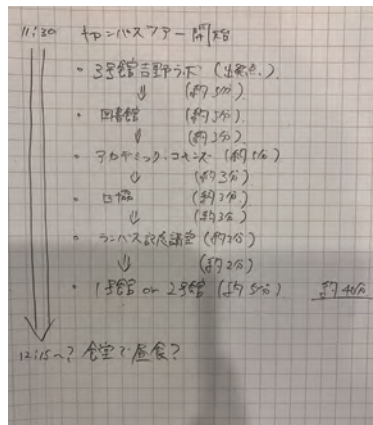 11:30 キャンパスツアー開始
・3号館吉野ラボ (出発点)
⇓ (約3分)
・図書館 (約5分)
⇓ (約3分)
・アカデミック・コモンズ (約5分)
⇓ (約3分)
・生協 (約3分)
⇓ (約3分)
・ランバス記念講堂 (約2分)
⇓ (約2分)
・1号館 or 2号館 (約5分) 約40分
12:15~? 食堂で昼食?